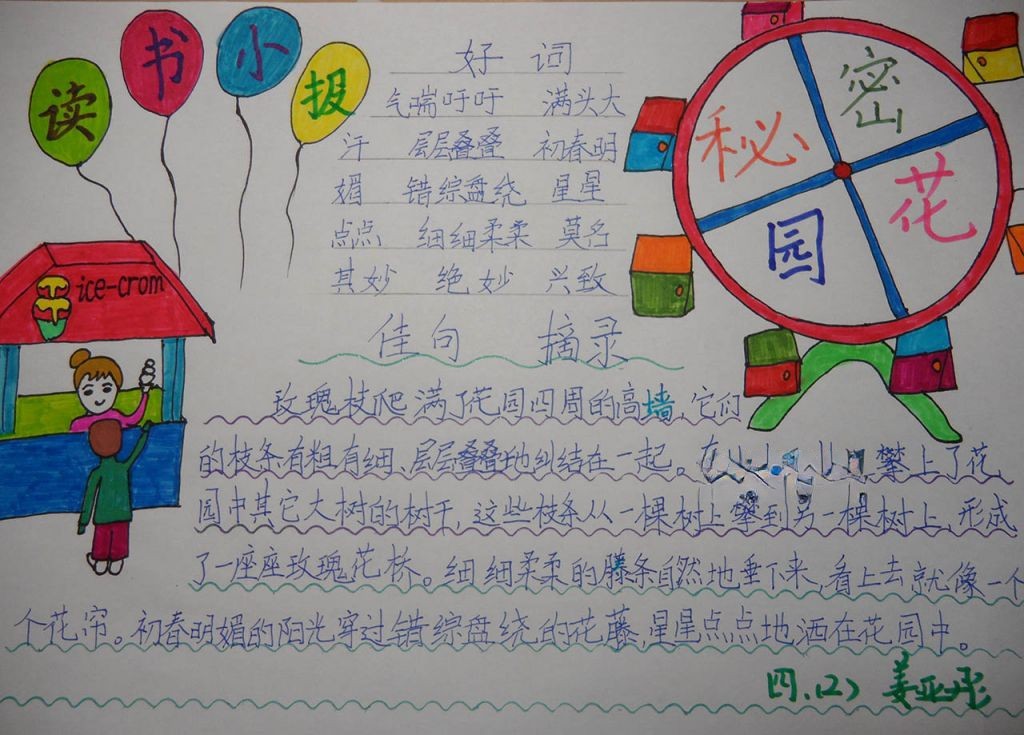 读书小报
秘密花园
ice-crom
好 词
气喘吁吁 满头大
汗 层层叠叠 初春明
媚 错综盘绕 星星
点点 细细柔柔 莫名
其妙 绝妙 兴致
佳句 摘录
玫瑰枝爬满了花园四周的高墙,它们
的枝条有粗有细、层层叠叠地纠结在一起。攀上了花
园中其它大树的树干,这些枝条从一棵树上攀到另一棵树上,形成
了一座座玫瑰花桥。细细柔柔的藤条自然地垂下来,看上去就像一个
个花帘。初春明媚的阳光穿过错综盘绕的花藤,星星点点地洒在花园中。
四.(2) 姜亚彤